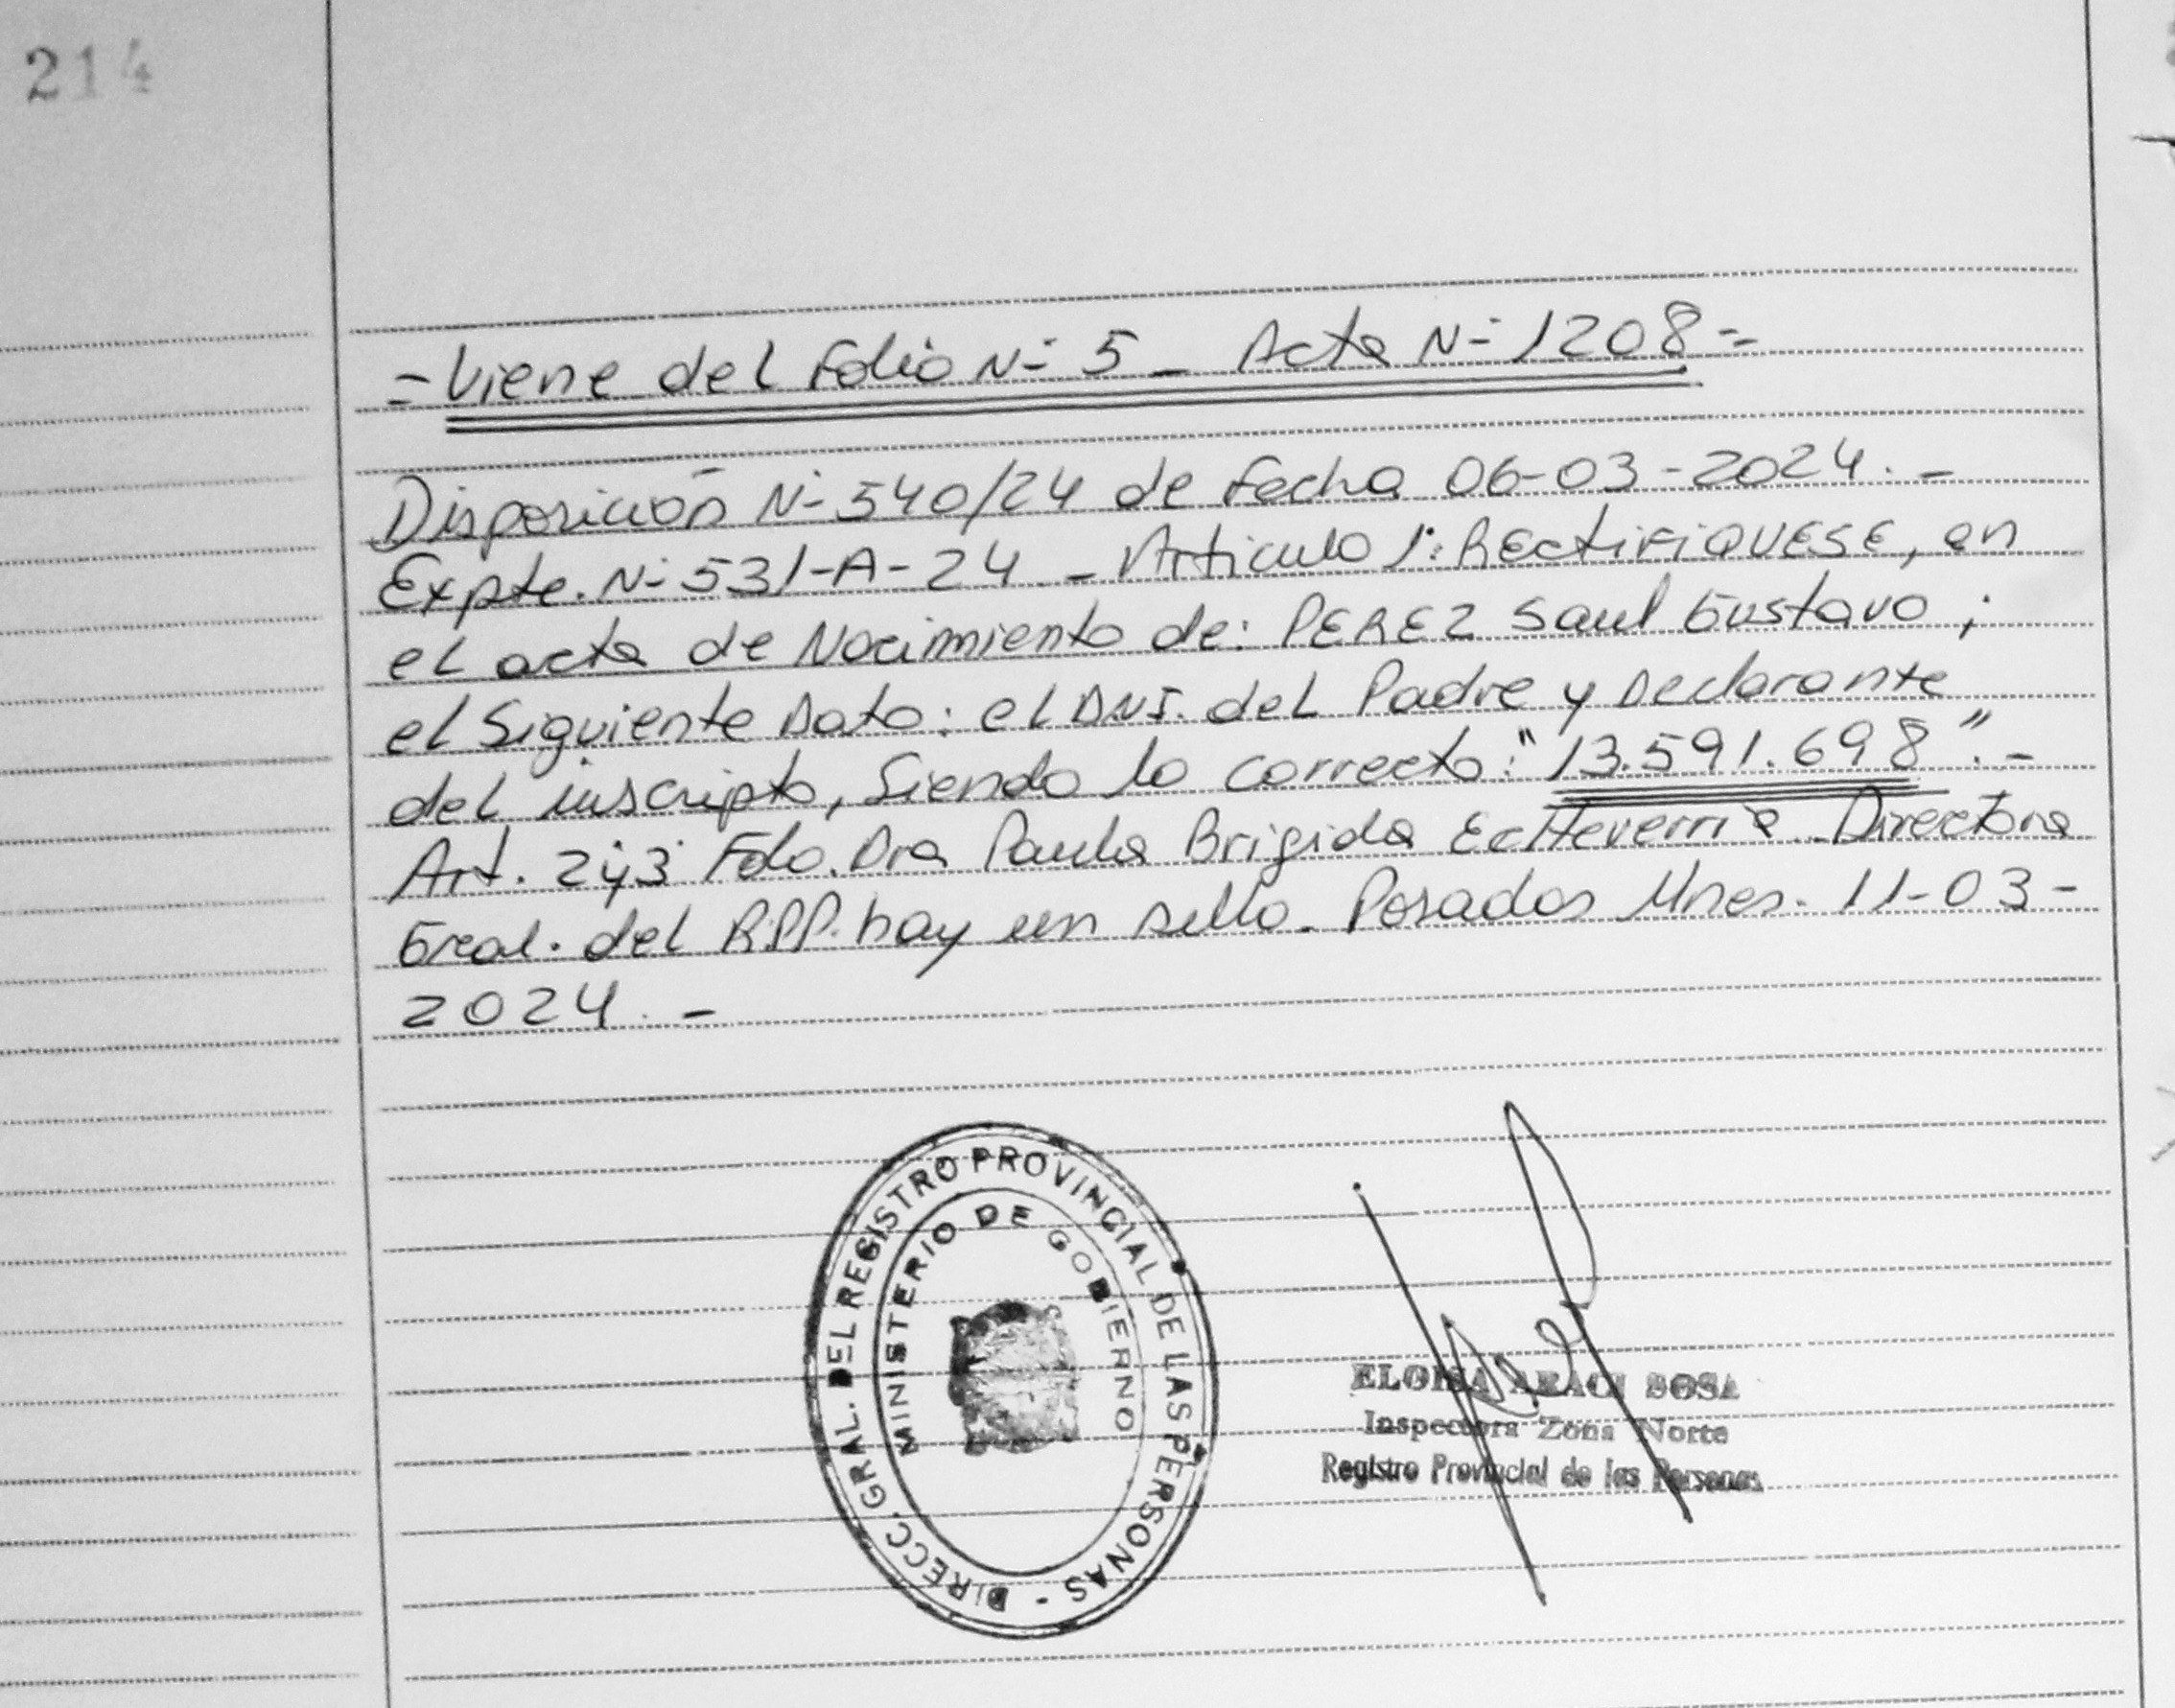 214
= Viene del Folio N° 5 _ Acta N° 1208 =
Disposición N° 540/24 de Fecha 06-03-2024. -
Expte. N° 531-A-24 _ Articulo 1°: RECTIFIQUESE, en
el acta de Nacimiento de: PEREZ Saul Gustavo ;
el Siguiente Dato: el DNI. del Padre y Declarante
del inscripto, Siendo lo correcto: "13.591.698". -
Art. 2 y 3 Fdo. Dra Paula Brigida Echeverria Directora
Gral. del R.P.P. hay un sello. Posadas Mnes. 11-03-
2024. -
DIRECC. GRAL. DEL REGISTRO PROVINCIAL DE LAS PERSONAS -
MINISTERIO DE GOBIERNO
ELOISA ARACI SOSA
Inspectora Zona Norte
Registro Provincial de las Personas